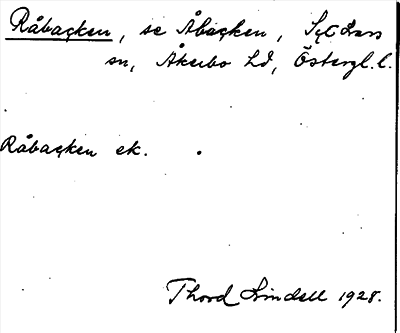 Råbacken, se Åbacken, S:t Lars
sn, Åkerbo hd, Östergl. l.
Råbacken ek.
Thord Lindell 1928.